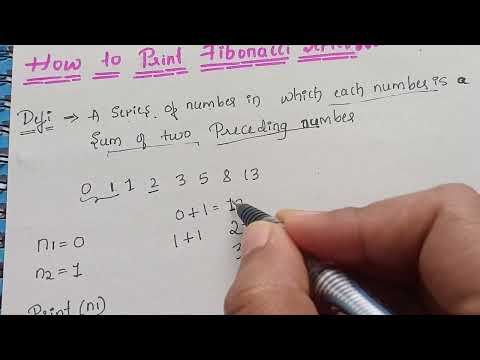 How to Print Fibonacci Series
Defi → A series of number in which each number is a
sum of two Preceding number
0 1 1 2 3 5 8 13
0+1 = 1
n1 = 0
1+1 2
n2 = 1
3
Print (n1)